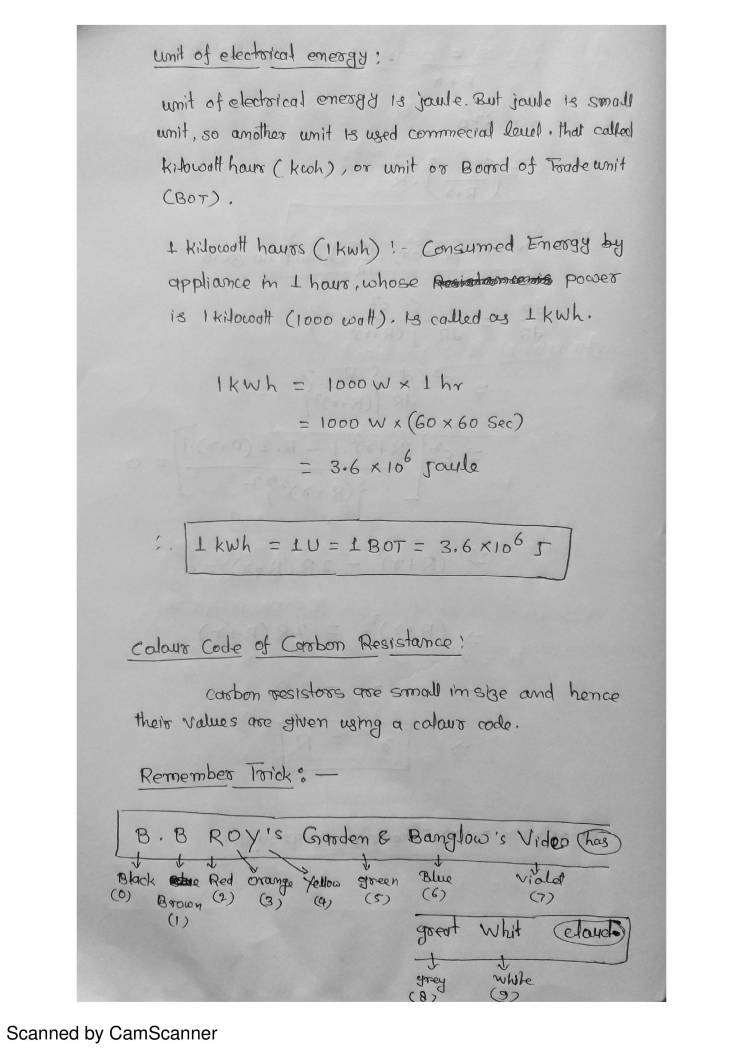 unit of electrical energy :
unit of electrical energy is jaule. But jaule is small
unit, so another unit is used commecial level. that called
kilowatt haurs (kwh), or unit or Board of Trade unit
(BOT).
1 kilowatt haurs (1kwh) :- Consumed Energy by
appliance in 1 haur, whose power
is 1 kilowatt (1000 watt). Is called as 1 kWh.
1 kWh = 1000 W × 1 hr
= 1000 W × (60 × 60 Sec)
= 3.6 × 10⁶ Jaule
∴ 1 kWh = 1U = 1 BOT = 3.6 × 10⁶ J
Colaur Code of Carbon Resistance :
Carbon resistors are small in size and hence
their values are given using a colaur code.
Remember Trick : —
B . B ROY's Garden & Banglow's Video has
Black Red Orange Yellow green Blue Violat
(0) Brown (2) (3) (4) (5) (6) (7)
(1)
great Whit claud
grey white
(8) (9)
Scanned by CamScanner